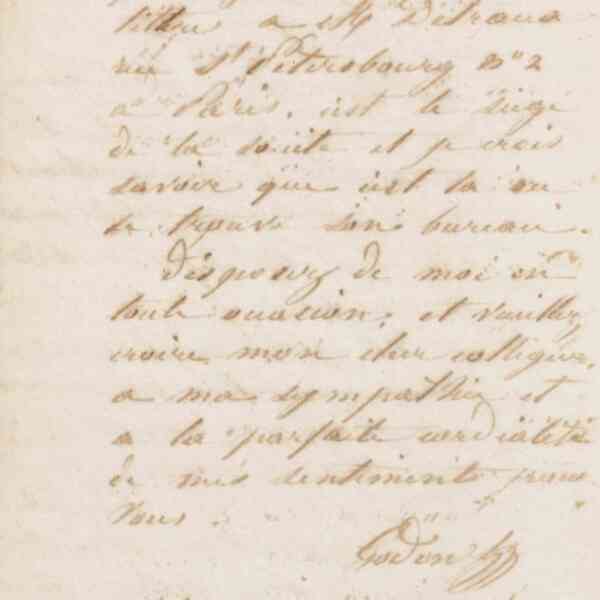 lettre a Mr
rue St Petersbourg n° 2
a Paris. c'est le siège
de la société et je crois
savoir que c'est la ou
se trouve son bureau.
Disposez de moi en
toute occasion, et veuillez
croire mon cher collègue,
a ma sympathie et
a la parfaite cordialité
de mes sentiments pour
vous.
Godon